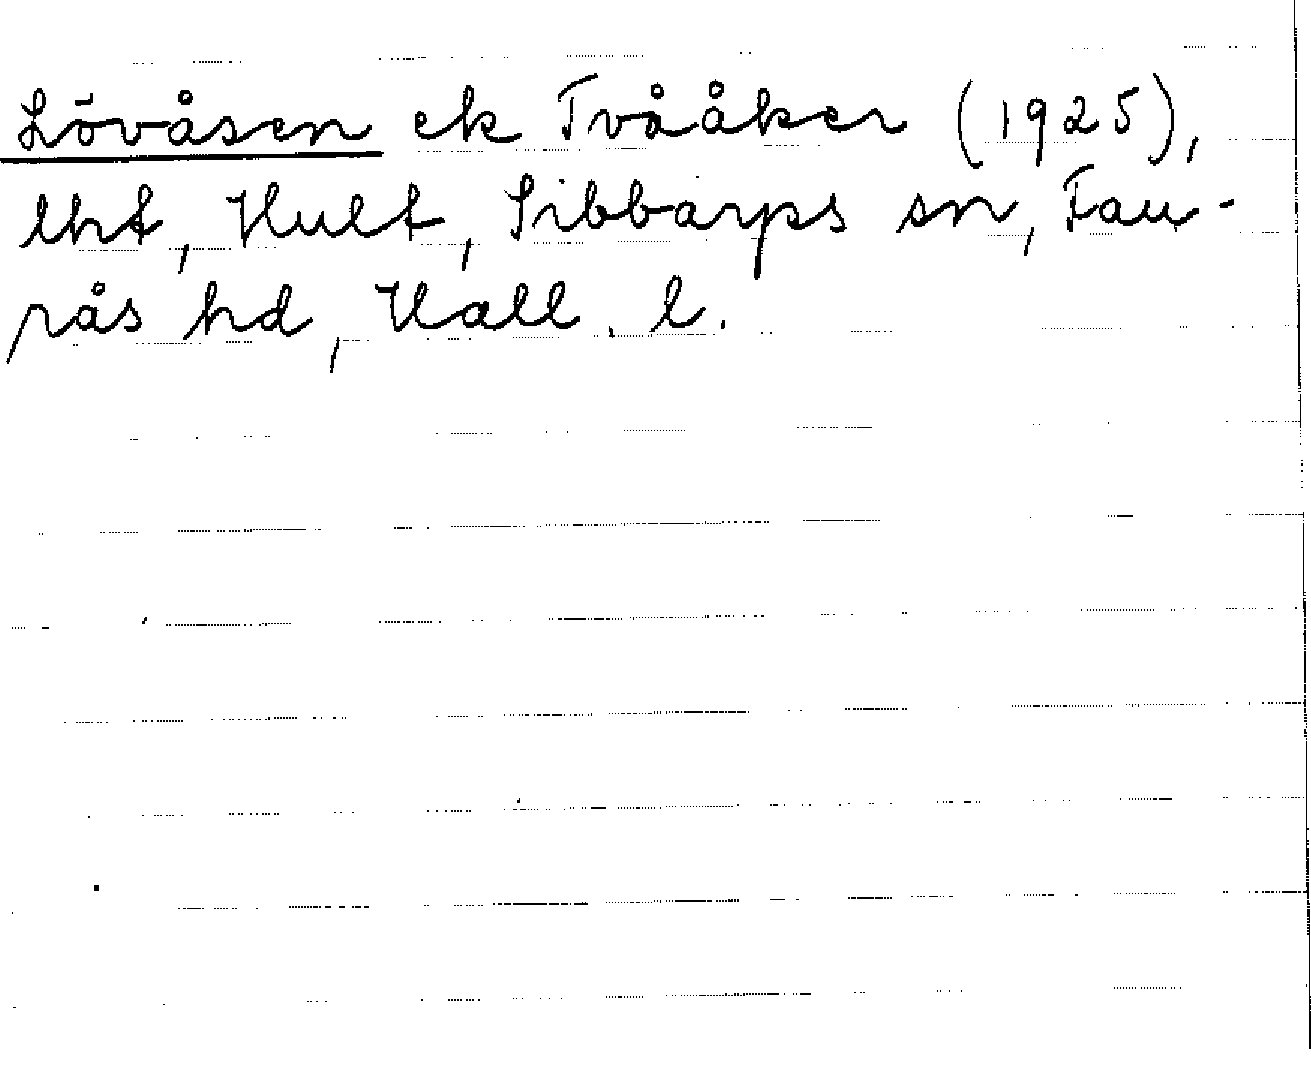 Lövåsen ek Tvååker (1925),
lht, Hult, Sibbarps sn, Fau-
rås hd, Hall. l.